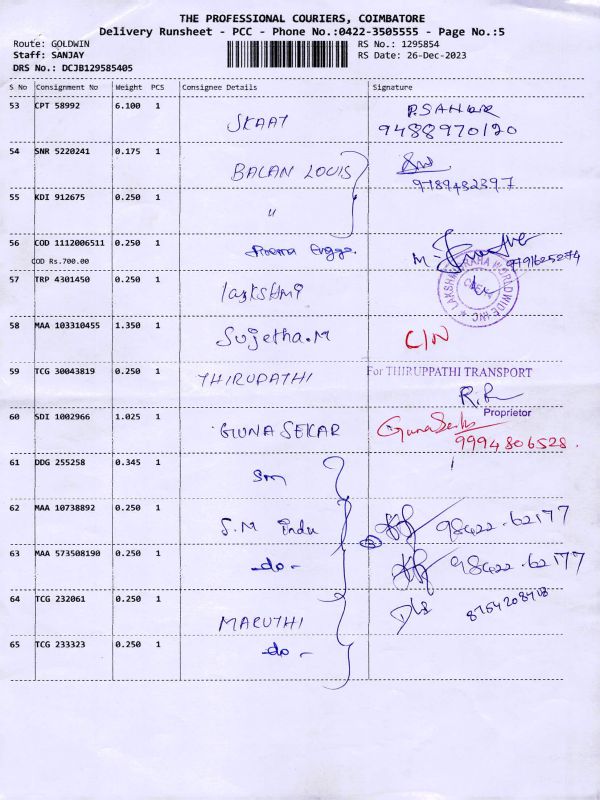 THE PROFESSIONAL COURIERS, COIMBATORE
Delivery Runsheet - PCC - Phone No.:0422-3505555 - Page No.:5
Route: GOLDWIN RS No.: 1295854
Staff: SANJAY RS Date: 26-Dec-2023
DRS No.: DCJB129585405
S No Consignment No Weight PCS Consignee Details Signature
53 CPT 58992 6.100 1 SKAAT P.SAHAR
9488970120
54 SNR 5220241 0.175 1 BALAN LOUIS
9789482397
55 KDI 912675 0.250 1 "
56 COD 1112006511 0.250 1 M-
COD Rs.700.00 9791625274
57 TRP 4301450 0.250 1 WORLDWIDE INC
58 MAA 103310455 1.350 1 Sujetha.M C/N
59 TCG 30043819 0.250 1 THIRUPATHI For THIRUPPATHI TRANSPORT
R.R
Proprietor
60 SDI 1002966 1.025 1 GUNA SEKAR GunaSeka
9994806528.
61 DDG 255258 0.345 1 sm
62 MAA 10738892 0.250 1 S.M indu 98422.62177
63 MAA 573508190 0.250 1 -do- 98422.62177
64 TCG 232061 0.250 1 MARUTHI 8754208708
65 TCG 233323 0.250 1 -do-